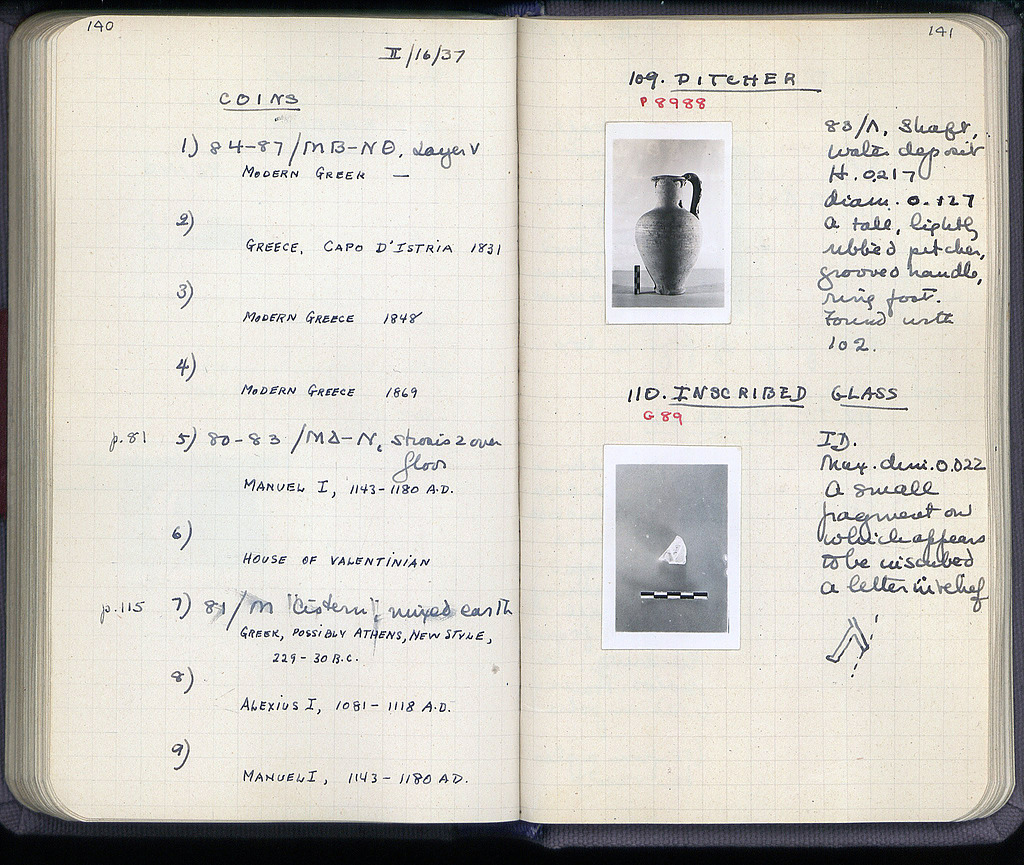 140
II/16/37
COINS
1) 84-87/MB-NΘ, Layer V
MODERN GREEK —
2)
GREECE, CAPO D'ISTRIA 1831
3)
MODERN GREECE 1848
4)
MODERN GREECE 1869
p.81 5) 80-83 /MΔ-N, strosis 2 over
floor
MANUEL I, 1143-1180 A.D.
6)
HOUSE OF VALENTINIAN
p.115 7) 81/M "Cistern", mixed earth
GREEK, POSSIBLY ATHENS, NEW STYLE,
229-30 B.C.
8)
ALEXIUS I, 1081-1118 A.D.
9)
MANUEL I, 1143-1180 AD.
141
109. PITCHER
P 8988
83/Λ, Shaft,
water deposit
H. 0.217
diam. 0.127
A tall, lightly
ribbed pitcher,
grooved handle,
ring foot.
Found with
102.
110. INSCRIBED GLASS
G 89
ID.
Max. dim. 0.022
A small
fragment on
which appears
to be inscribed
a letter in relief